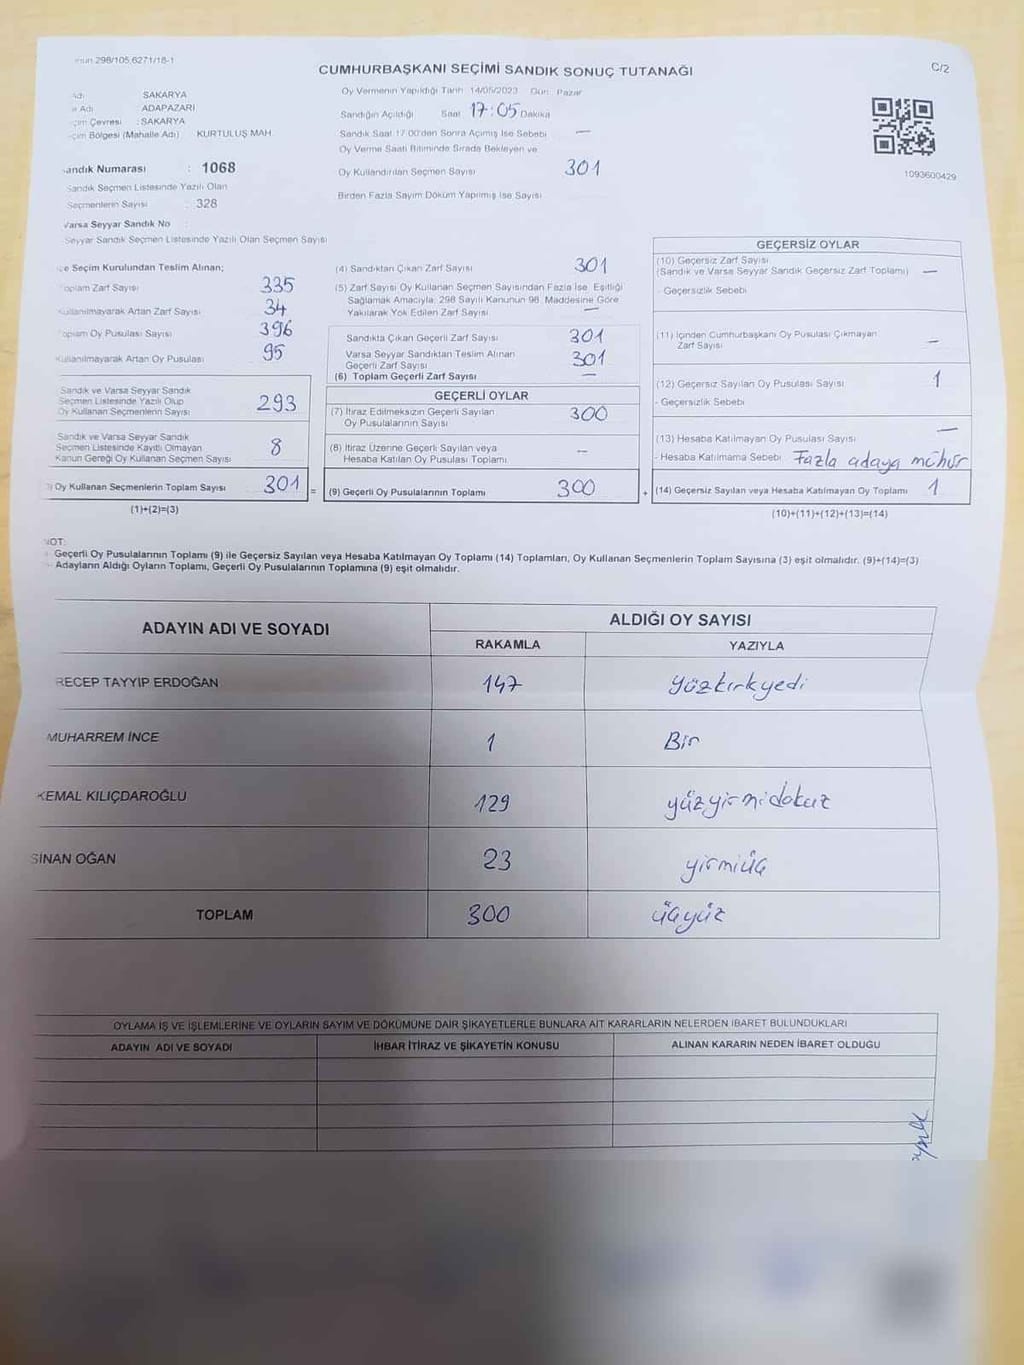 298/105,6271/18-1
C/2
CUMHURBAŞKANI SEÇİMİ SANDIK SONUÇ TUTANAĞI
Adı SAKARYA
Adı ADAPAZARI
Çevresi : SAKARYA
Bölgesi (Mahalle Adı) KURTULUŞ MAH.
Oy Vermenin Yapıldığı Tarih 14/05/2023 Gün: Pazar
Sandığın Açıldığı Saat 17:05 Dakika
Sandık Saat 17.00'den Sonra Açılmış İse Sebebi —
Oy Verme Saati Bitiminde Sırada Bekleyen ve
Oy Kullandırılan Seçmen Sayısı 301
Birden Fazla Sayım Döküm Yapılmış İse Sayısı
1093600429
andık Numarası : 1068
Sandık Seçmen Listesinde Yazılı Olan
Seçmenlerin Sayısı : 328
Varsa Seyyar Sandık No :
Seyyar Sandık Seçmen Listesinde Yazılı Olan Seçmen Sayısı
çe Seçim Kurulundan Teslim Alınan;
Toplam Zarf Sayısı 335
Kullanılmayarak Artan Zarf Sayısı 34
Toplam Oy Pusulası Sayısı 396
Kullanılmayarak Artan Oy Pusulası 95
Sandık ve Varsa Seyyar Sandık
Seçmen Listesinde Yazılı Olup
Oy Kullanan Seçmenlerin Sayısı 293
Sandık ve Varsa Seyyar Sandık
Seçmen Listesinde Kayıtlı Olmayan
Kanun Gereği Oy Kullanan Seçmen Sayısı 8
Oy Kullanan Seçmenlerin Toplam Sayısı 301 =
(1)+(2)=(3)
(4) Sandıktan Çıkan Zarf Sayısı 301
(5) Zarf Sayısı Oy Kullanan Seçmen Sayısından Fazla İse, Eşitliği
Sağlamak Amacıyla, 298 Sayılı Kanunun 98. Maddesine Göre
Yakılarak Yok Edilen Zarf Sayısı —
Sandıkta Çıkan Geçerli Zarf Sayısı 301
Varsa Seyyar Sandıktan Teslim Alınan
Geçerli Zarf Sayısı 301
(6) Toplam Geçerli Zarf Sayısı —
GEÇERLİ OYLAR
(7) İtiraz Edilmeksizin Geçerli Sayılan
Oy Pusulalarının Sayısı 300
(8) İtiraz Üzerine Geçerli Sayılan veya
Hesaba Katılan Oy Pusulası Toplamı —
(9) Geçerli Oy Pusulalarının Toplamı 300 +
GEÇERSİZ OYLAR
(10) Geçersiz Zarf Sayısı
(Sandık ve Varsa Seyyar Sandık Geçersiz Zarf Toplamı) —
- Geçersizlik Sebebi
(11) İçinden Cumhurbaşkanı Oy Pusulası Çıkmayan
Zarf Sayısı —
(12) Geçersiz Sayılan Oy Pusulası Sayısı 1
- Geçersizlik Sebebi
(13) Hesaba Katılmayan Oy Pusulası Sayısı —
- Hesaba Katılmama Sebebi Fazla adaya mühür
(14) Geçersiz Sayılan veya Hesaba Katılmayan Oy Toplamı 1
(10)+(11)+(12)+(13)=(14)
NOT:
- Geçerli Oy Pusulalarının Toplamı (9) ile Geçersiz Sayılan veya Hesaba Katılmayan Oy Toplamı (14) Toplamları, Oy Kullanan Seçmenlerin Toplam Sayısına (3) eşit olmalıdır. (9)+(14)=(3)
- Adayların Aldığı Oyların Toplamı, Geçerli Oy Pusulalarının Toplamına (9) eşit olmalıdır.
ADAYIN ADI VE SOYADI ALDIĞI OY SAYISI
RAKAMLA YAZIYLA
RECEP TAYYİP ERDOĞAN 147 yüzkırkyedi
MUHARREM İNCE 1 Bir
KEMAL KILIÇDAROĞLU 129 yüzyirmidokuz
SİNAN OĞAN 23 yirmiüç
TOPLAM 300 üçyüz
OYLAMA İŞ VE İŞLEMLERİNE VE OYLARIN SAYIM VE DÖKÜMÜNE DAİR ŞİKAYETLERLE BUNLARA AİT KARARLARIN NELERDEN İBARET BULUNDUKLARI
ADAYIN ADI VE SOYADI İHBAR İTİRAZ VE ŞİKAYETİN KONUSU ALINAN KARARIN NEDEN İBARET OLDUĞU